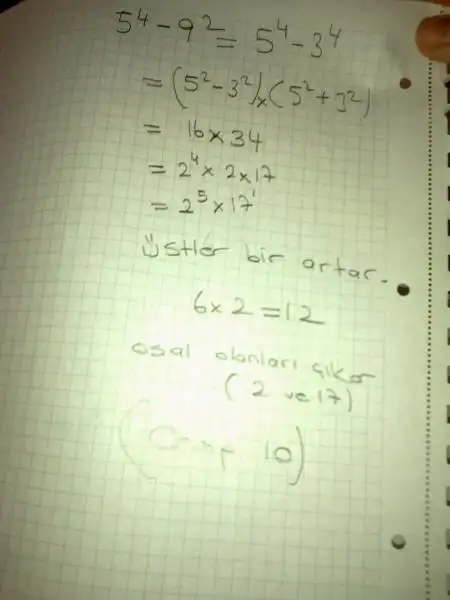 5⁴ - 9² = 5⁴ - 3⁴
= (5² - 3²) x (5² + 3²)
= 16 x 34
= 2⁴ x 2 x 17
= 2⁵ x 17¹
üstler bir artar.
6 x 2 = 12
asal olanları çıkar
( 2 ve 17 )
( 10 )